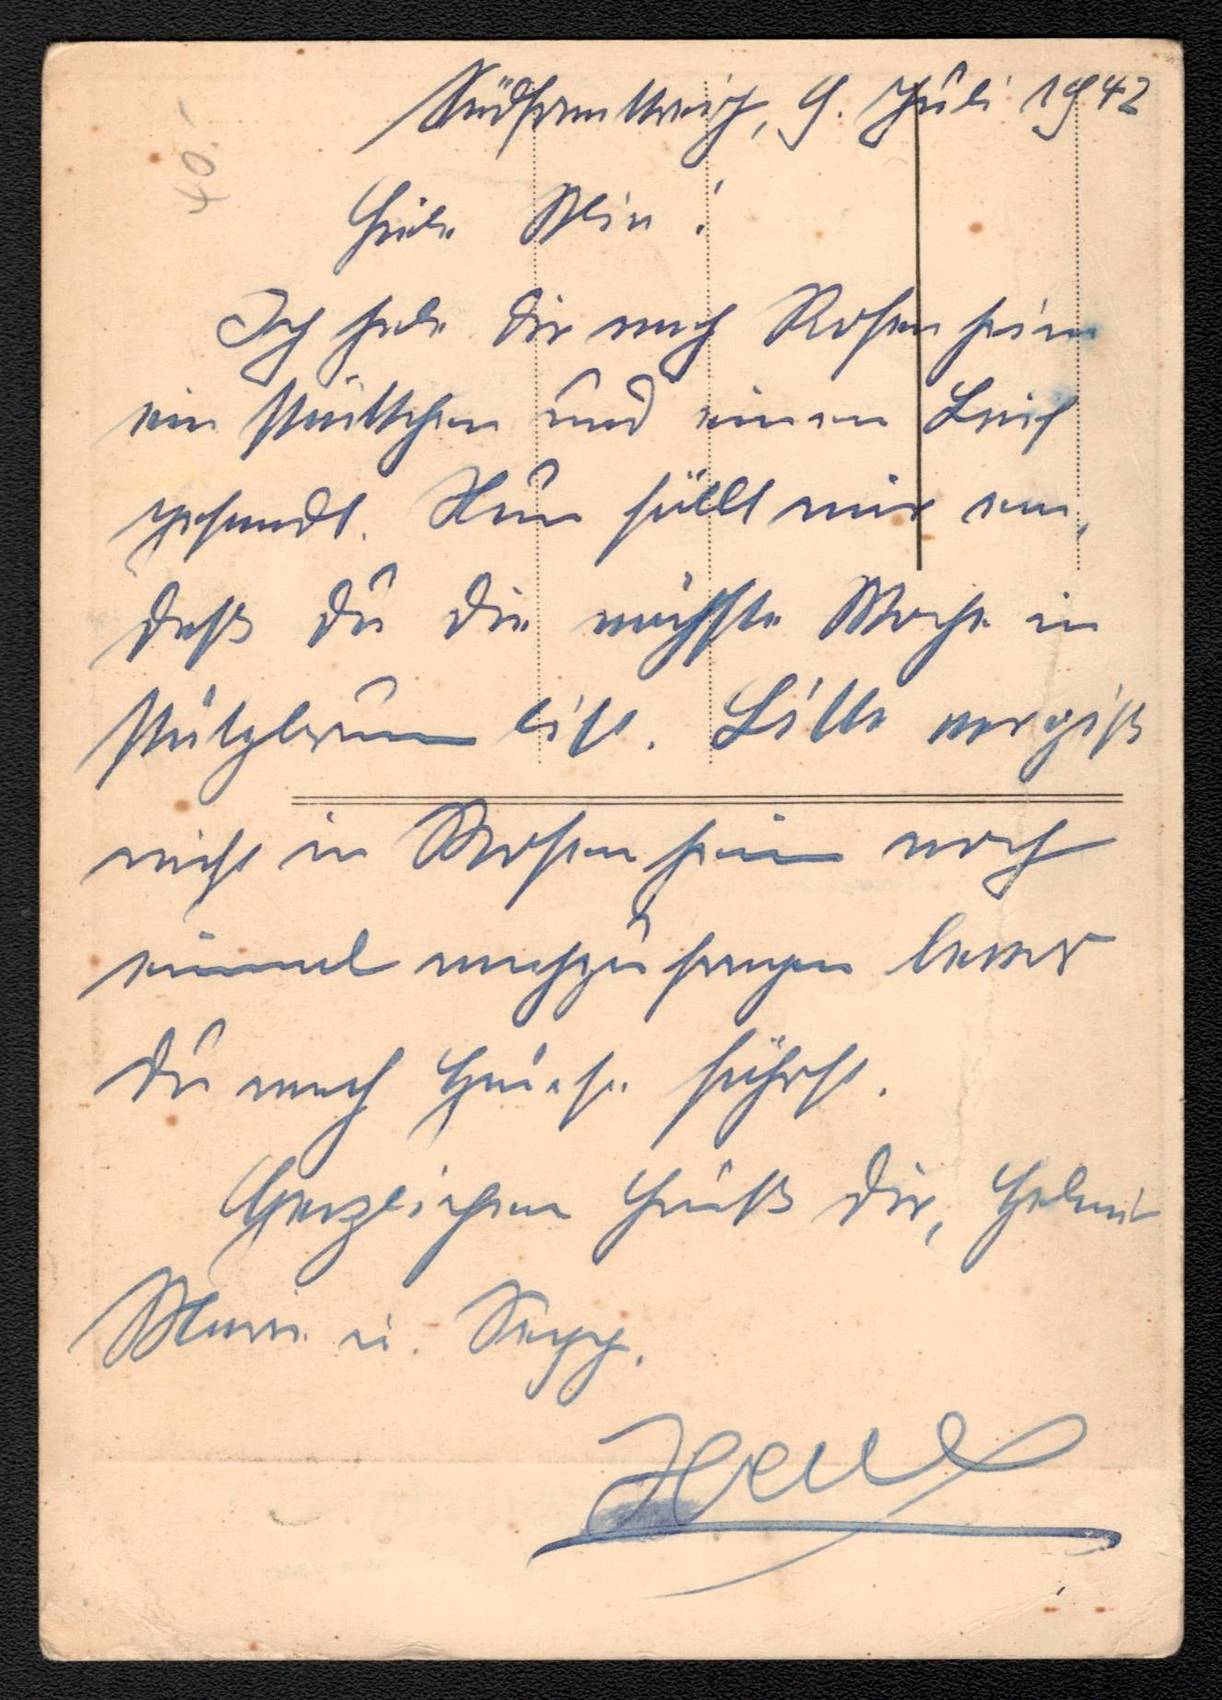 40.-
Südfrankreich, 9. Juli 1942
Liebe
Ich habe Dir nach Rosenheim
ein Päckchen und einen Brief
gesandt. Nun fällt mir ein,
daß Du die nächste Woche in
bist. Bitte vergiß
nicht in Rosenheim noch
einmal nachzufragen bevor
Du nach Hause fährst.
Herzlichen Gruß Dir, Helmut
Marie u. Sepp.